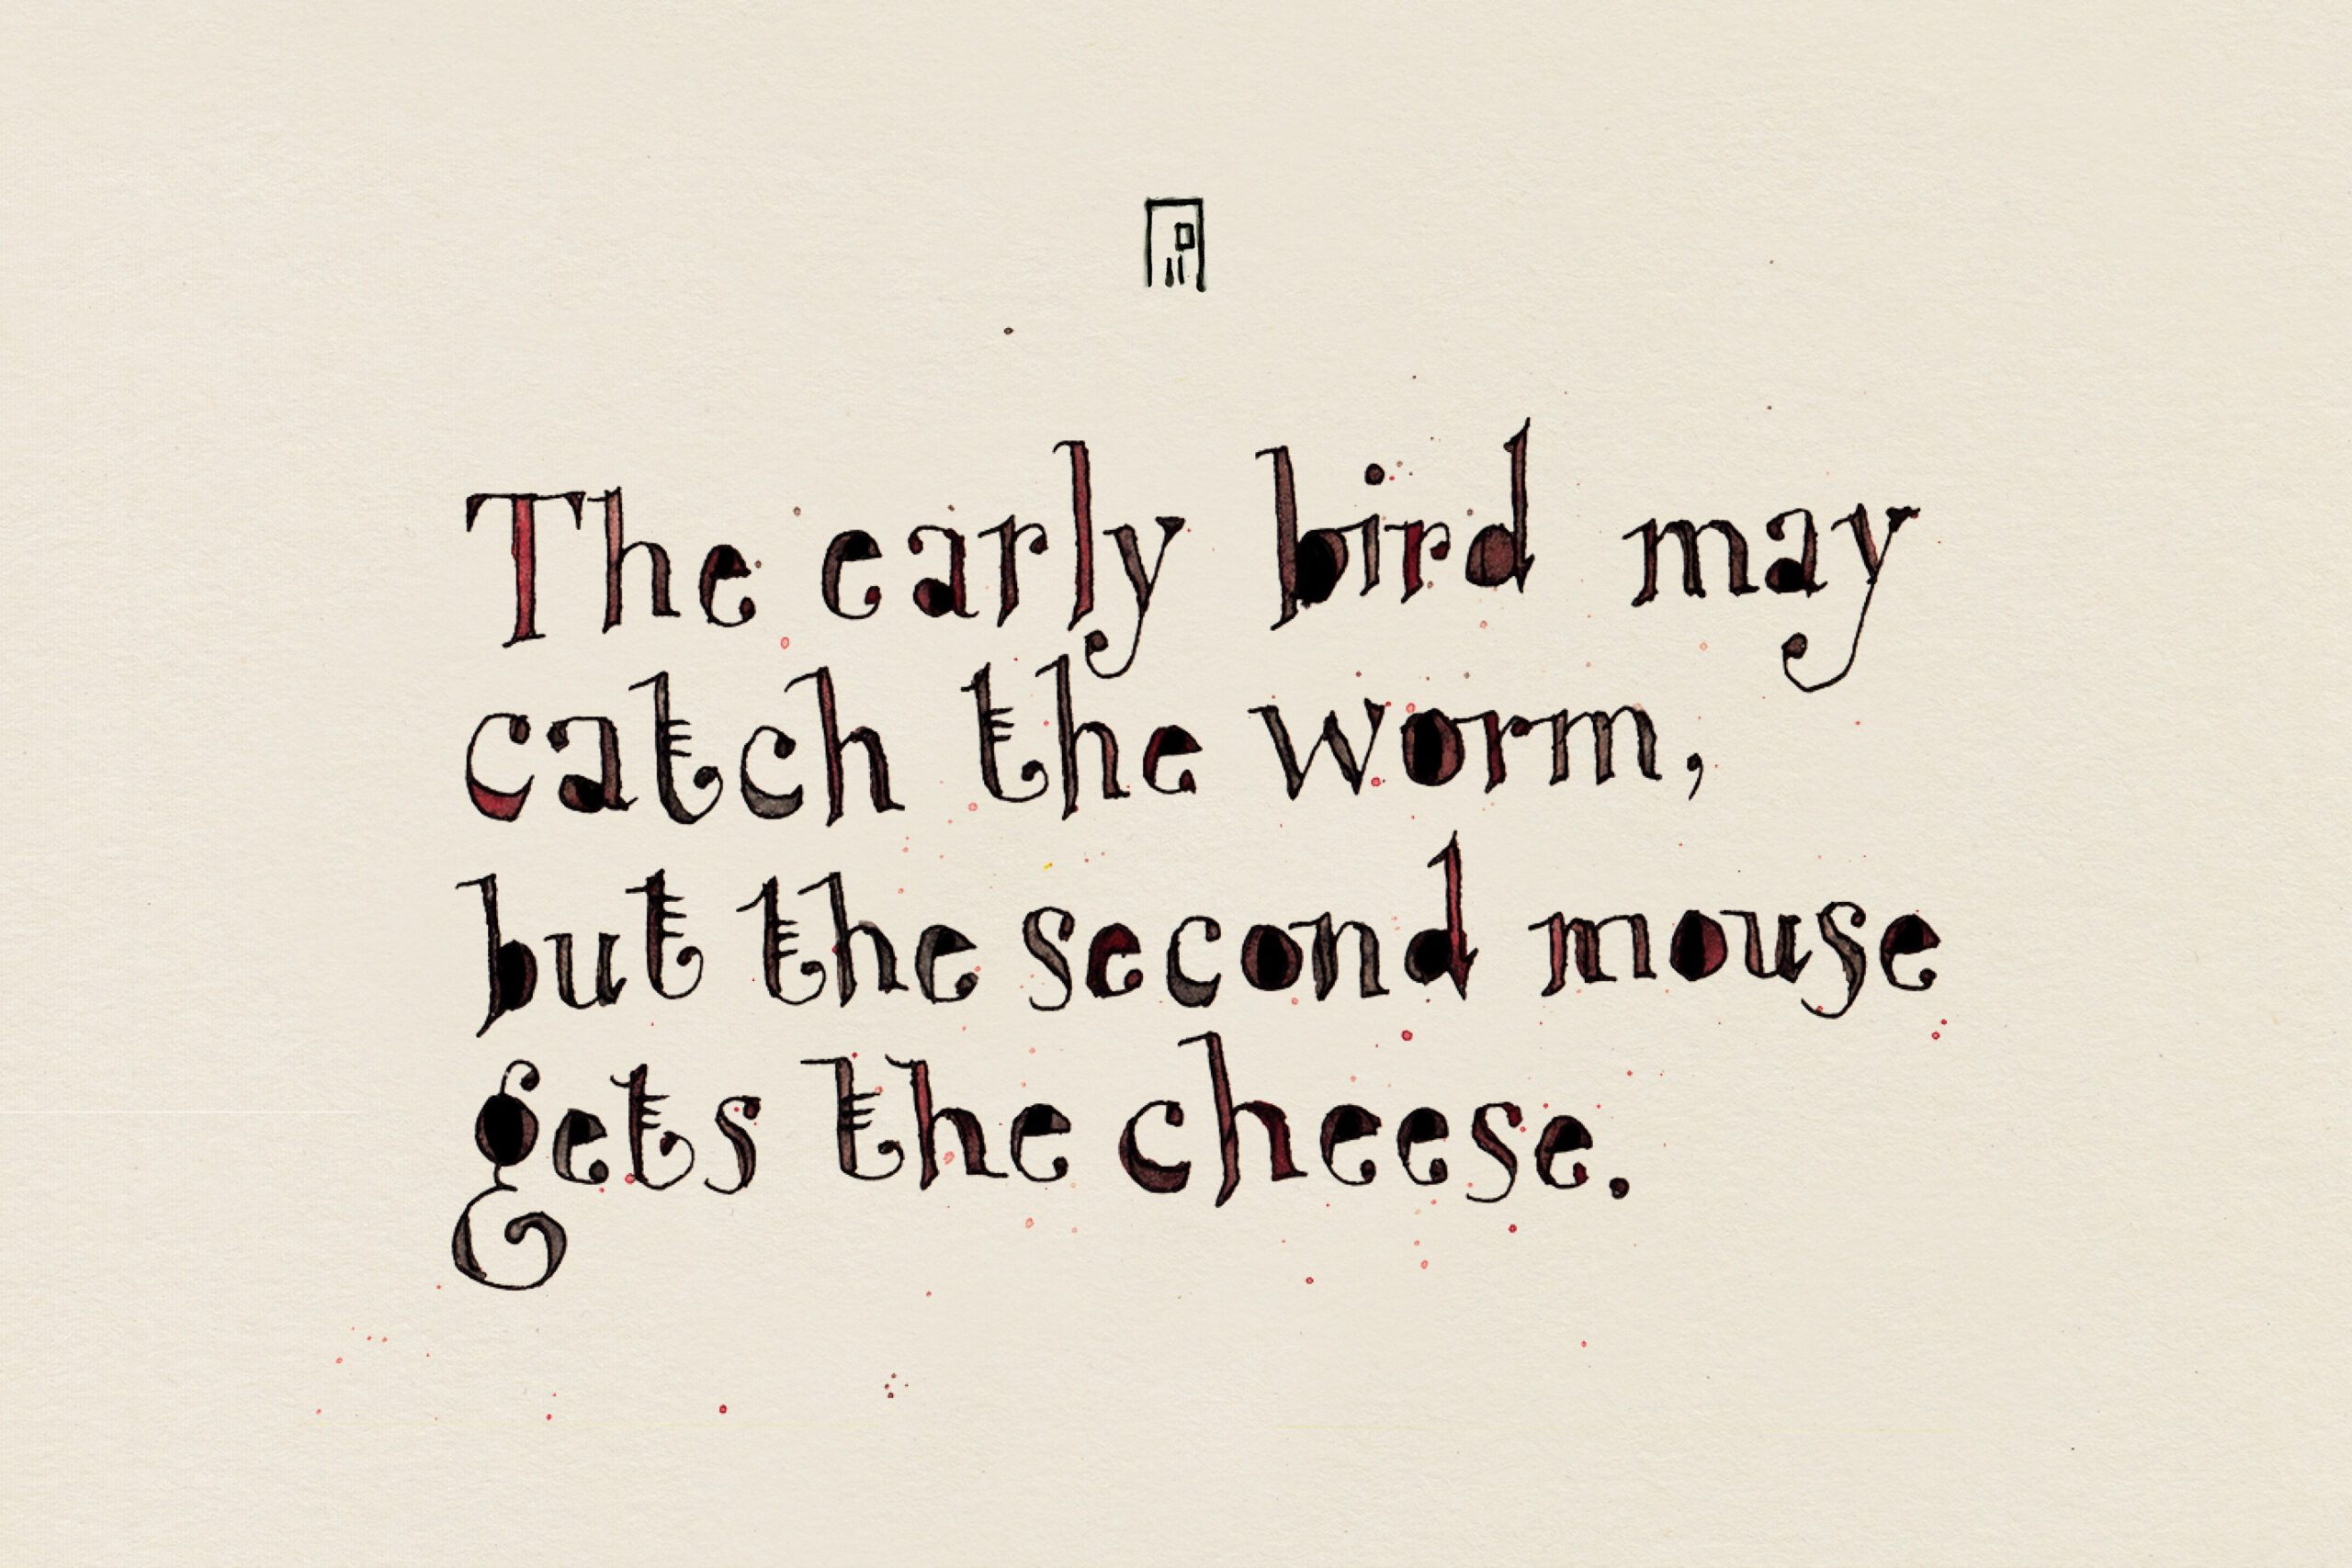 The early bird may
catch the worm,
but the second mouse
gets the cheese.